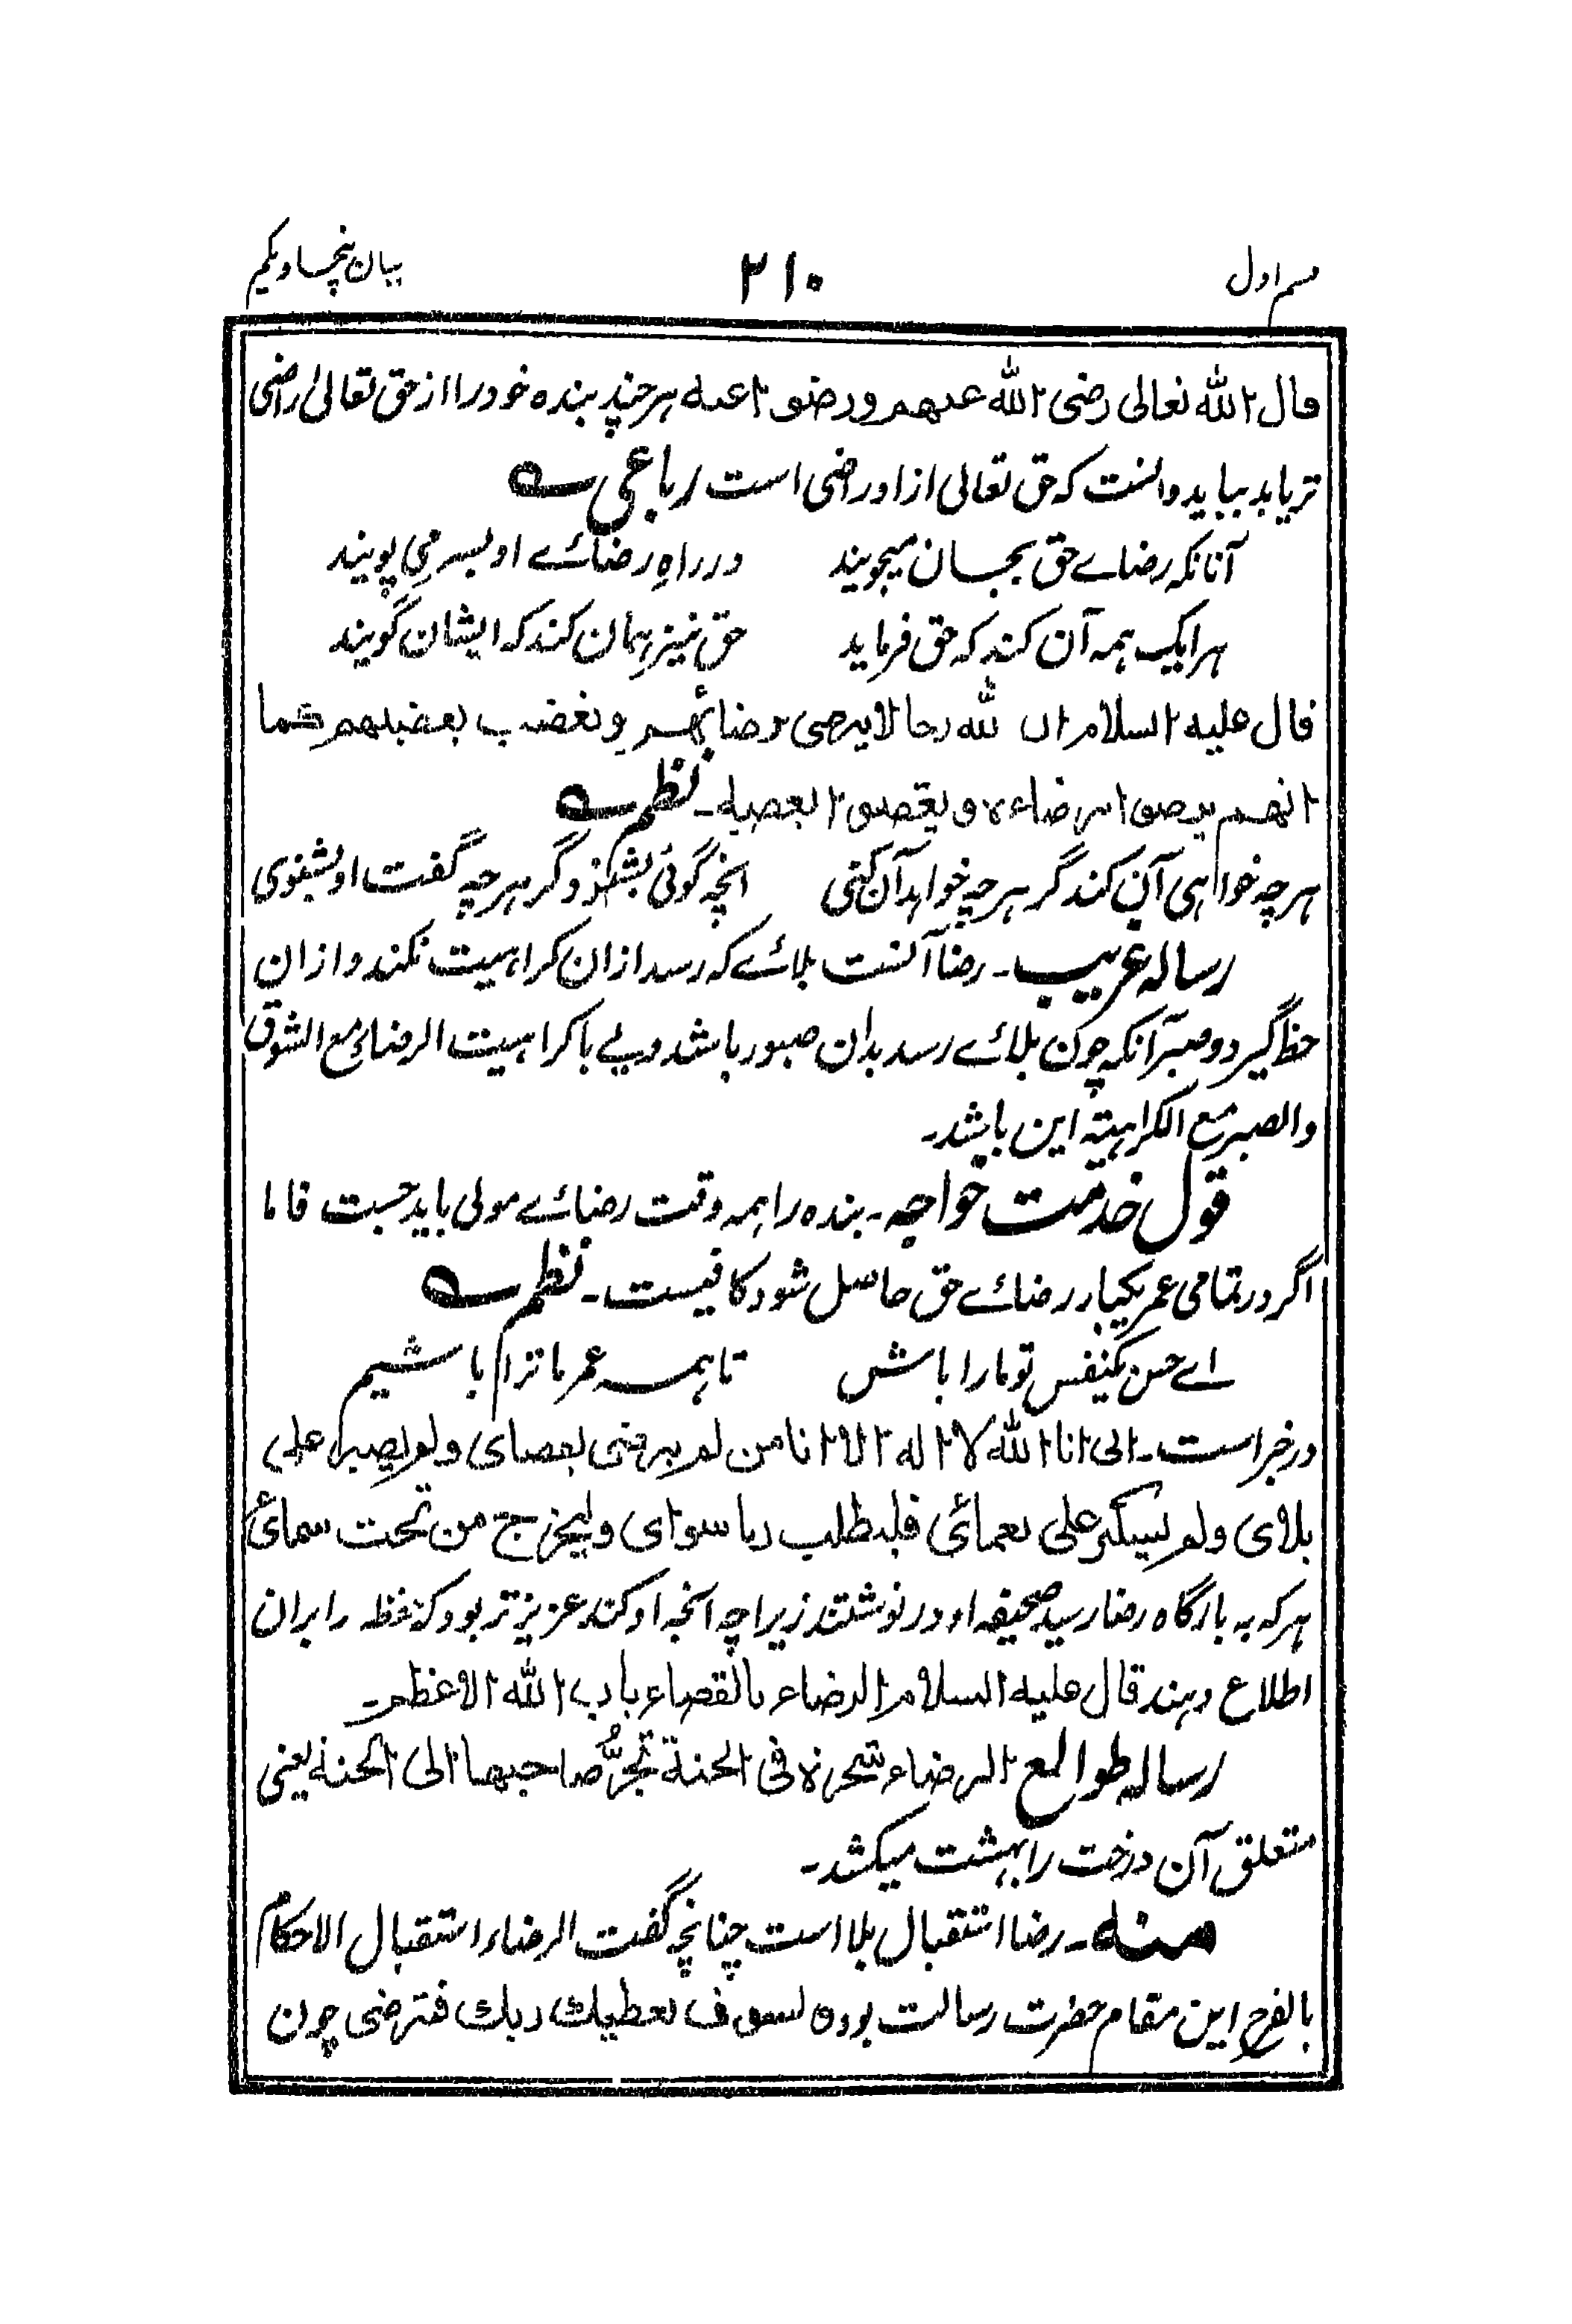 قسم اول
۲۱۰
بیان پنجاه و یکم
قال الله تعالی رضی الله عنهم و رضوا عنه ہر چند بندہ خود را از حق تعالیٰ راضی
تر یابد بباید دانست کہ حق تعالیٰ از او راضی است رباعی
آنانکہ رضاے حق بجان میجویند در راہِ رضائے او بسر می پویند
ہر ایک ہمہ آن کند کہ حق فرماید حق نیز ہمان کند کہ ایشان گویند
قال علیه السلام ان لله رجالا یرضی برضائهم و یغضب بغضبهم کما
انهم یرضوا برضاءه و یغضبوا بغضبه۔ نظم
ہر چہ خواہی آن کند گر ہر چہ خواہد آن کنی انچہ گوئی بشنود گر ہر چہ گفت او بشنوی
رسالہ غریب۔ رضا آنست بلائے کہ رسد ازان کراہیت نکند و ازان
حظ گیرد و صبر آنکہ چون بلائے رسد بدان صبور باشد ولے با کراہیت الرضائ مع الشوق
والصبر مع الکراہیۃ این باشد۔
قول خدمت خواجہ۔ بندہ را ہمہ وقت رضائے مولی باید جست فاما
اگر در تمامی عمر یکبار رضائے حق حاصل شود کافیست۔ نظم
اے حسن یکنفس تو ما را باش تا ہمہ عمر ما ترا باشیم
در خبر است۔ انی انا الله لا اله الا انا من لم یرضی بقضای و لم یصبر علی
بلای و لم یشکر علی نعمائی فلیطلب ربا سوای و لیخرج من تحت سمائی
ہر کہ بہ بارگاہ رضا رسید صحیفہ او در نوشتند زیراچہ انچہ او کند عزیز تر بود کہ حفظہ را بران
اطلاع دہند قال علیه السلام الرضاء بالقضاء باب الله الاعظم۔
رسالہ طوالع الرضاء شجرة فی الجنة تجرُّ صاحبها الی الجنة یعنی
متعلق آن درخت را بہشت میکشد۔
منه۔ رضا استقبال بلا است چنانچہ گفت الرضاء استقبال الاحکام
بالفرح این مقام حضرت رسالت بود و لسوف یعطیك ربك فترضی چون